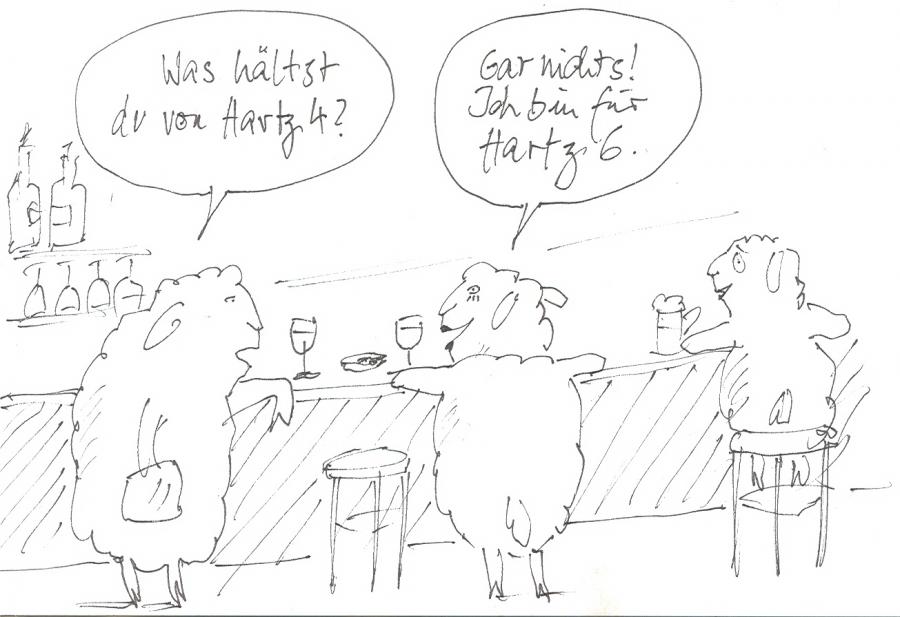 Was hältst
du von Hartz 4?
Gar nichts!
Ich bin für
Hartz 6.